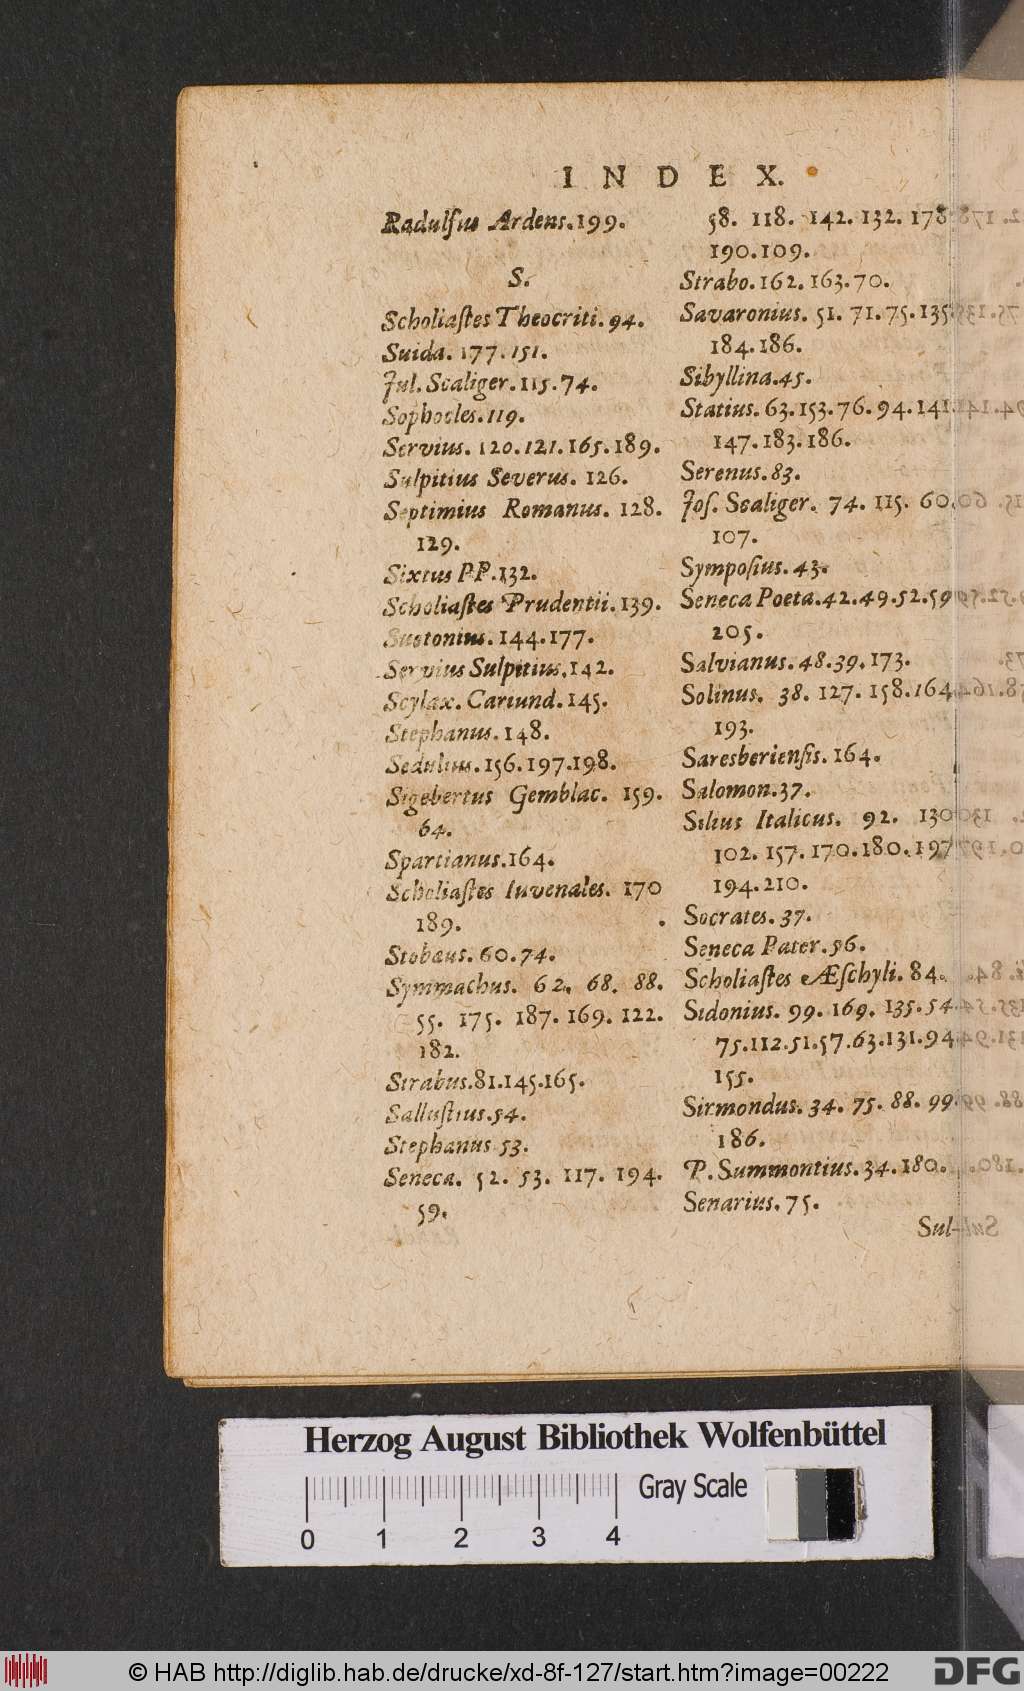 INDEX.
Radulfus Ardens.199.
S.
Scholiaſtes Theocriti.94.
Suida.177.151.
Jul. Scaliger.115.74.
Sophocles.119.
Servius.120.121.165.189.
Sulpitius Severus. 126.
Septimius Romanus. 128.
129.
Sixtus PP.132.
Scholiaſtes Prudentii.139.
Suetonius.144.177.
Servius Sulpitius.142.
Scylax. Cariund.145.
Stephanus.148.
Sedulius.156.197.198.
Sigebertus Gemblac. 159.
64.
Spartianus.164.
Scholiaſtes Iuvenales. 170
189.
Stobæus.60.74.
Symmachus. 62. 68. 88.
55. 175. 187. 169. 122.
182.
Strabus.81.145.165.
Salluſtius.54.
Stephanus 53.
Seneca. 52. 53. 117. 194.
59.
58. 118. 142. 132. 178
190.109.
Strabo.162.163.70.
Savaronius. 51. 71. 75. 135.
184.186.
Sibyllina.45.
Statius.63.153.76.94.141.
147.183.186.
Serenus.83.
Joſ. Scaliger. 74. 115. 60.
107.
Sympoſius.43.
Seneca Poeta.42.49.52.59
205.
Salvianus.48.39.173.
Solinus. 38. 127. 158.164
193.
Saresberienſis.164.
Salomon.37.
Silius Italicus. 92. 130
102.157.170.180.197
194.210.
Socrates.37.
Seneca Pater.56.
Scholiaſtes Æſchyli. 84.
Sidonius. 99. 169. 135.54
75.112.51.57.63.131.94
155.
Sirmondus. 34. 75. 88. 99
186.
P. Summontius.34.180.
Senarius.75.
Sul-
Herzog August Bibliothek Wolfenbüttel
Gray Scale
0 1 2 3 4
© HAB http://diglib.hab.de/drucke/xd-8f-127/start.htm?image=00222
DFG